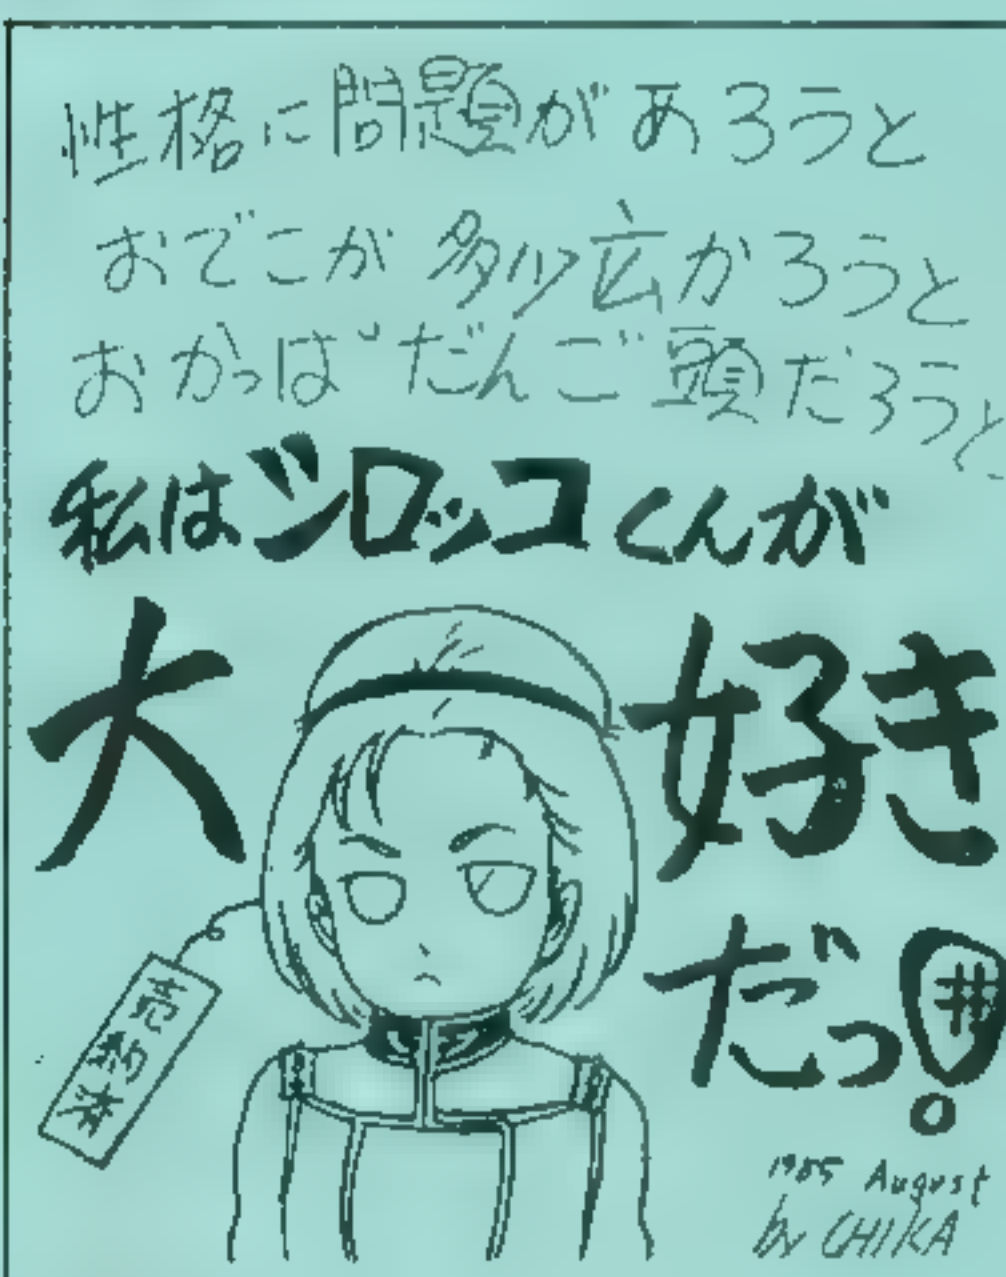 性格に問題があろうと
おでこが多少広かろうと
おかっぱだんご頭だろうと
私はシロッコくんが
大好き
だっ!
売約済
1985 August
by CHIKA